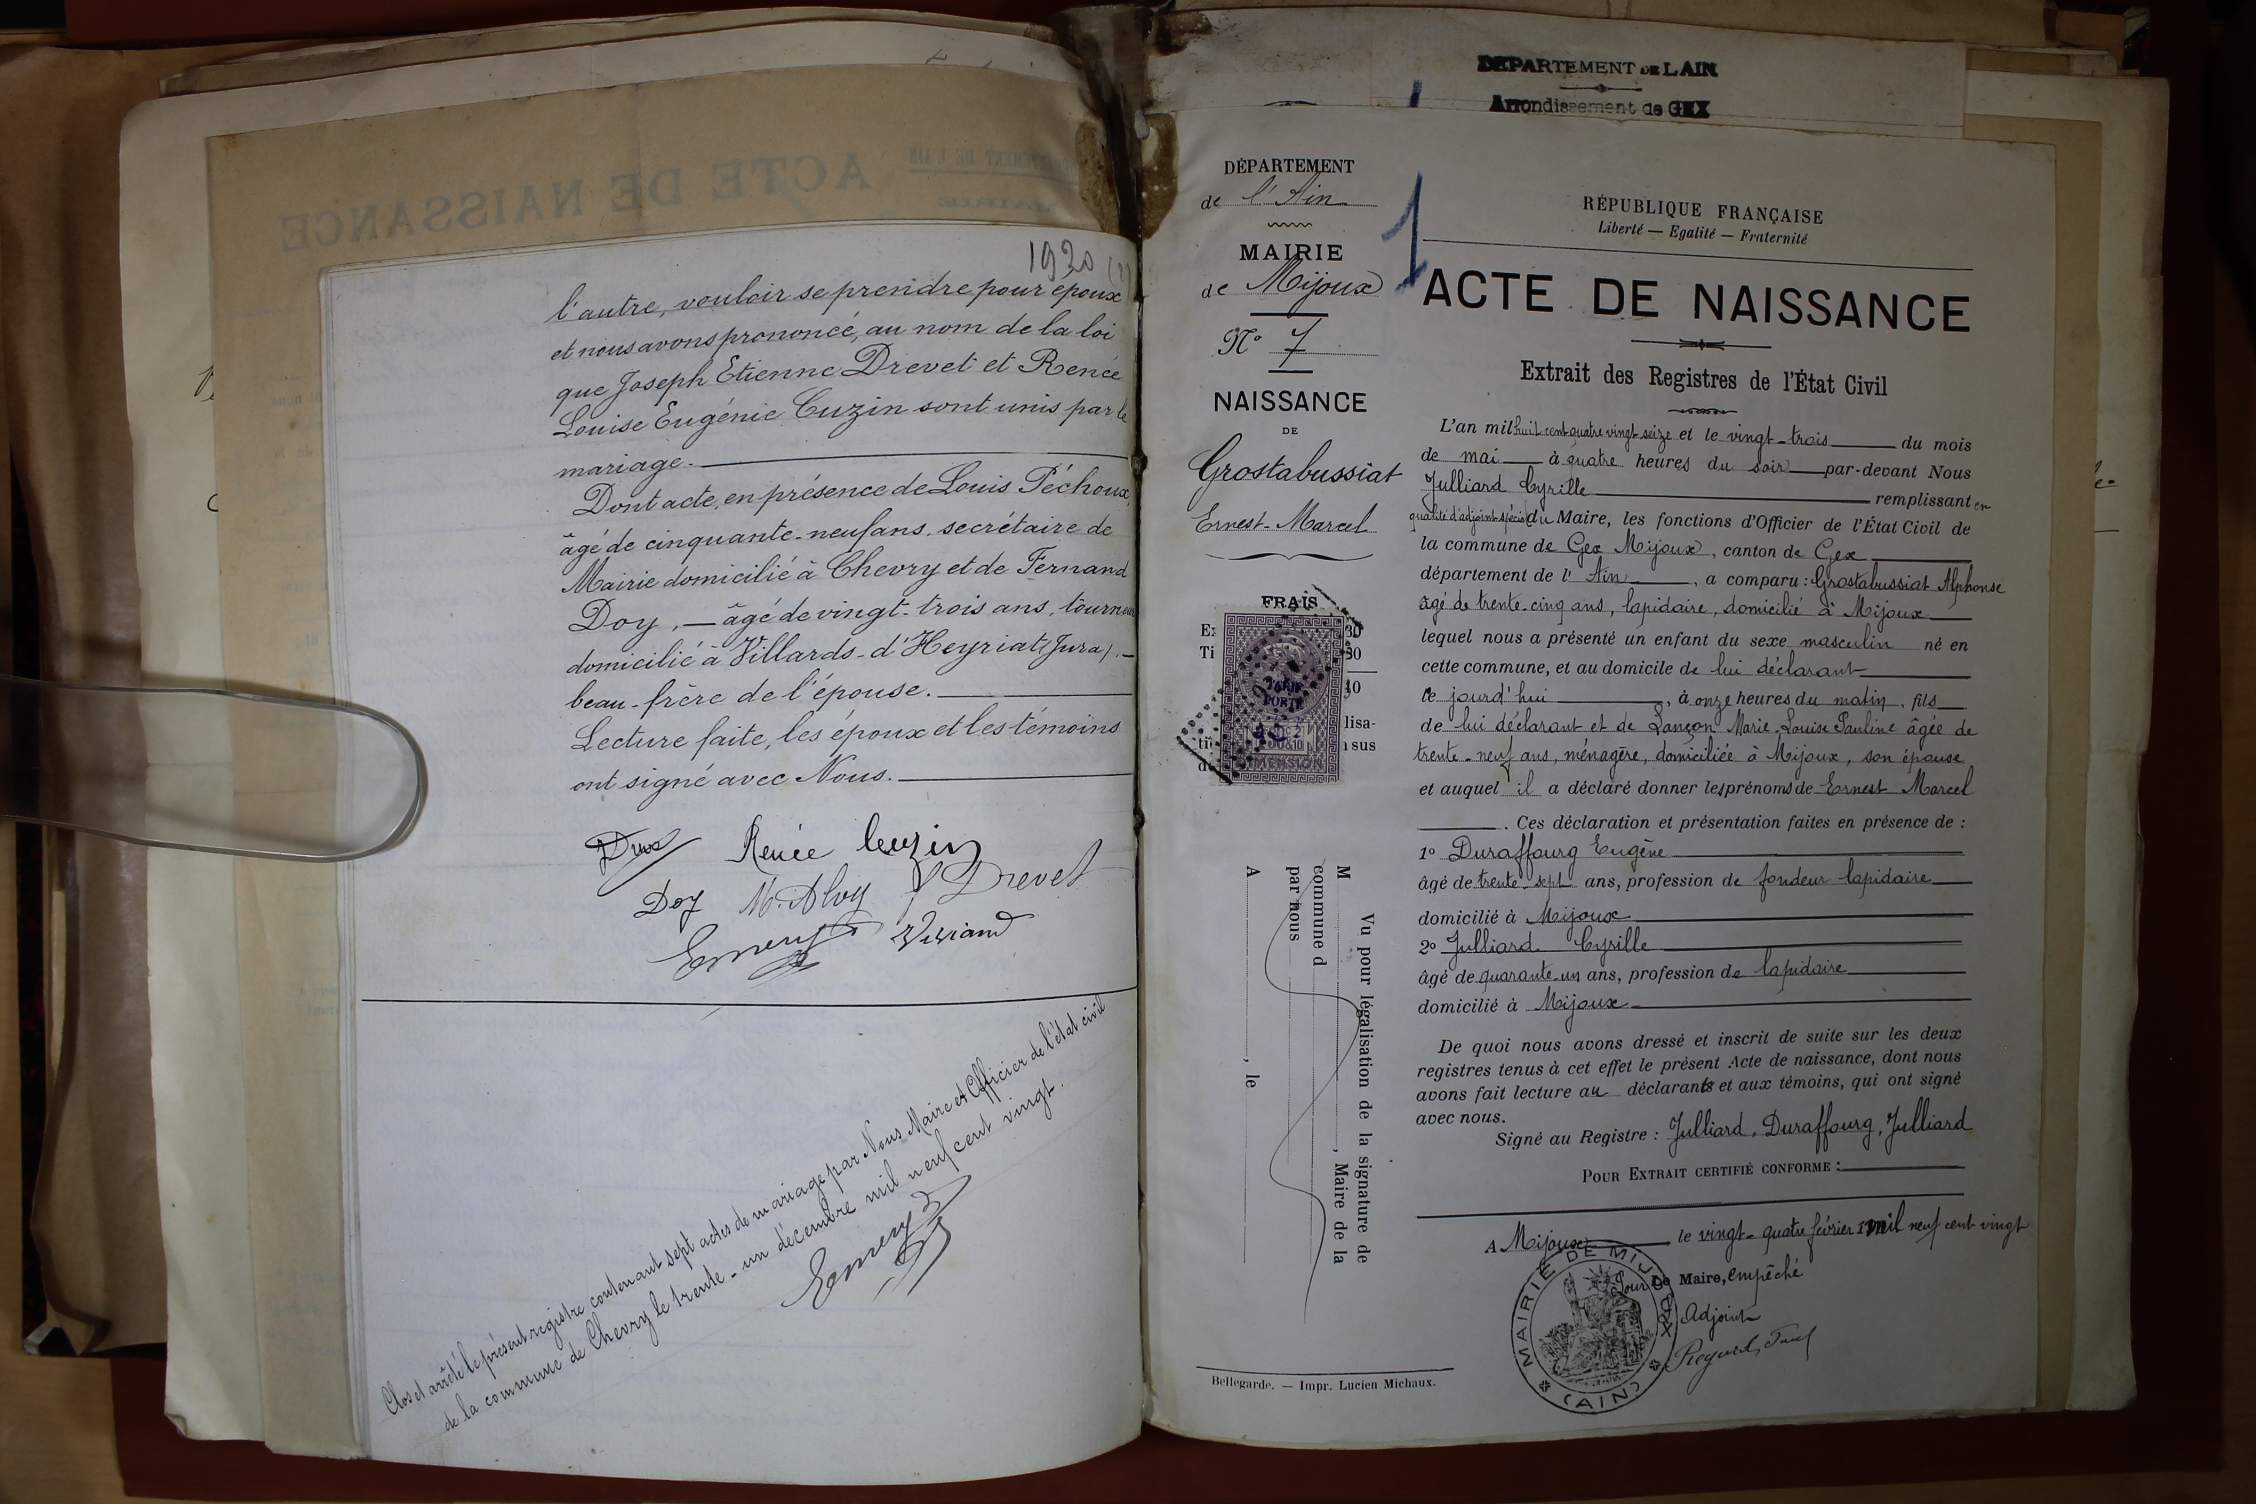 1920
l'autre, vouloir se prendre pour époux
et nous avons prononcé, au nom de la loi
que Joseph Etienne Drevet et Renée
Louise Eugénie Cuzin sont unis par le
mariage.
Dont acte, en présence de Louis Péchoux,
âgé de cinquante-neuf ans, secrétaire de
Mairie domicilié à Chevry et de Fernand
Doy, — âgé de vingt-trois ans, tourneur
domicilié à Villards-d'Heyriat (Jura). —
beau-frère de l'épouse.
Lecture faite, les époux et les témoins
ont signé avec Nous.
Renée Cuzin
Doy Drevet
Emery
Clos et arrêté le présent registre contenant sept actes de mariage par Nous Maire et Officier de l'état civil
de la commune de Chevry le trente-un décembre mil neuf cent vingt.
Emery
DEPARTEMENT DE L AIN
Arrondissement de GEX
DÉPARTEMENT
de l'Ain
MAIRIE
de Mijoux
N° 7
NAISSANCE
DE
Grostabussiat
Ernest-Marcel
FRAIS
DIMENSION
Vu pour légalisation de la signature de
M , Maire de la
commune d
par nous
A , le
Bellegarde. — Impr. Lucien Michaux.
1
RÉPUBLIQUE FRANÇAISE
Liberté — Egalité — Fraternité
ACTE DE NAISSANCE
Extrait des Registres de l'État Civil
L'an mil huit cent quatre vingt seize et le vingt-trois du mois
de mai à quatre heures du soir par-devant Nous
Julliard Cyrille remplissant en
qualité d'adjoint spécial du Maire, les fonctions d'Officier de l'État Civil de
la commune de Gex Mijoux, canton de Gex
département de l'Ain, a comparu : Grostabussiat Alphonse
âgé de trente-cinq ans, lapidaire, domicilié à Mijoux
lequel nous a présenté un enfant du sexe masculin né en
cette commune, et au domicile de lui déclarant
le jourd'hui, à onze heures du matin, fils
de lui déclarant et de Lançon Marie Louise Pauline âgée de
trente-neuf ans, ménagère, domiciliée à Mijoux, son épouse
et auquel il a déclaré donner les prénoms de Ernest Marcel
. Ces déclaration et présentation faites en présence de :
1° Duraffourg Eugène
âgé de trente-sept ans, profession de fondeur lapidaire
domicilié à Mijoux
2° Julliard Cyrille
âgé de quarante-un ans, profession de lapidaire
domicilié à Mijoux
De quoi nous avons dressé et inscrit de suite sur les deux
registres tenus à cet effet le présent Acte de naissance, dont nous
avons fait lecture au déclarants et aux témoins, qui ont signé
avec nous.
Signé au Registre : Julliard, Duraffourg, Julliard
POUR EXTRAIT CERTIFIÉ CONFORME :
A Mijoux le vingt-quatre février mil neuf cent vingt
Pour Le Maire, empêché
Adjoint
MAIRIE DE MIJOUX (AIN)